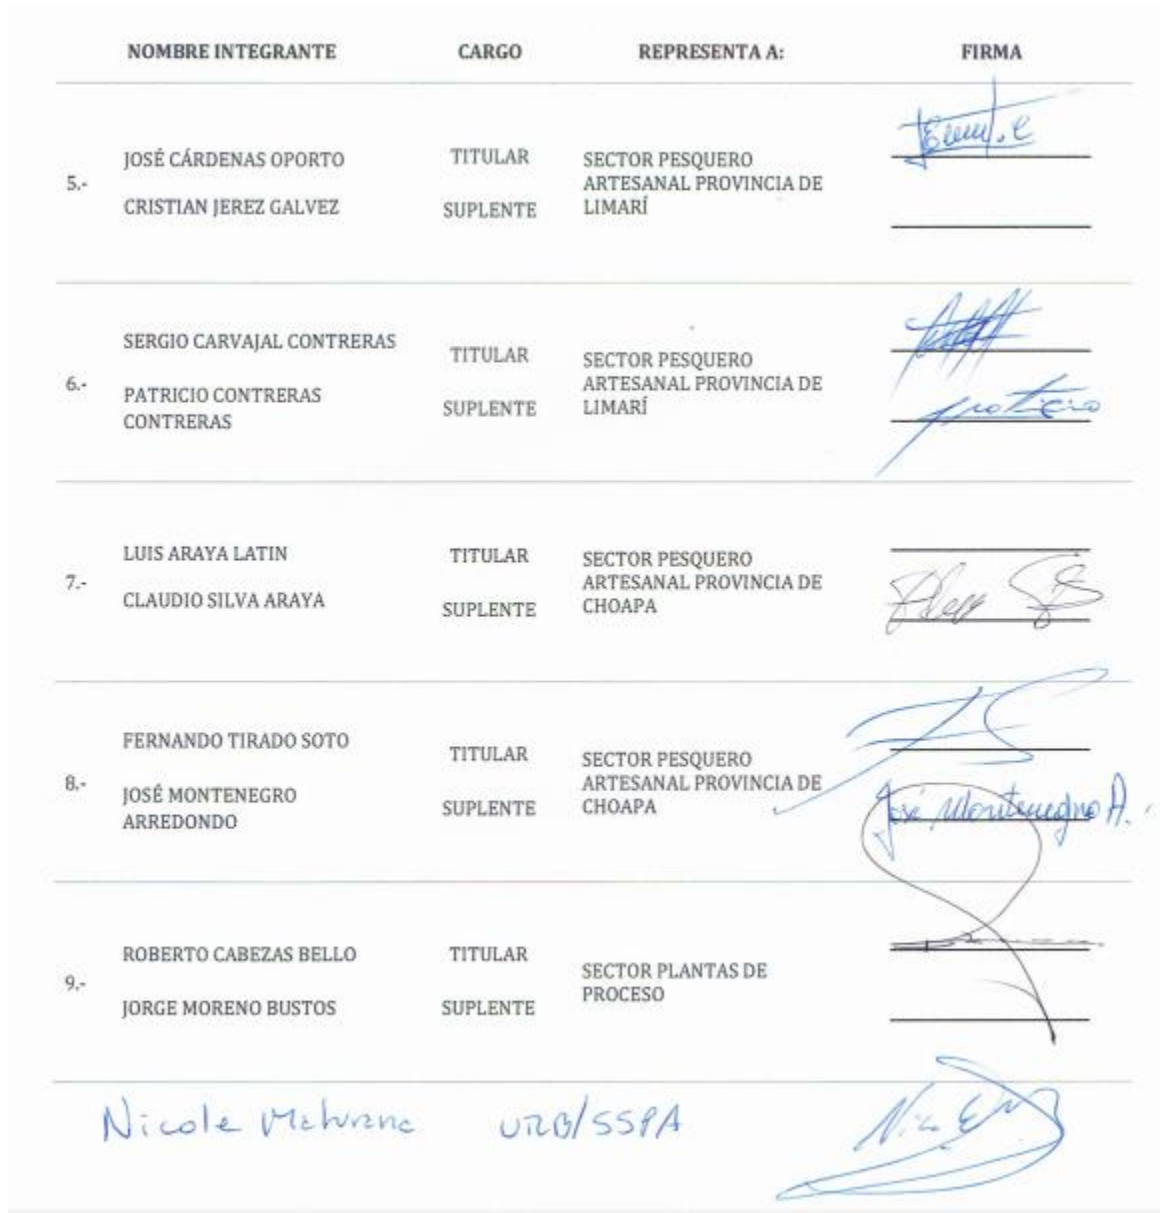 NOMBRE INTEGRANTE CARGO REPRESENTA A: FIRMA
5.-
JOSÉ CÁRDENAS OPORTO TITULAR
CRISTIAN JEREZ GALVEZ SUPLENTE
SECTOR PESQUERO
ARTESANAL PROVINCIA DE
LIMARÍ
6.-
SERGIO CARVAJAL CONTRERAS TITULAR
PATRICIO CONTRERAS
CONTRERAS
SUPLENTE
SECTOR PESQUERO
ARTESANAL PROVINCIA DE
LIMARÍ
7.-
LUIS ARAYA LATIN TITULAR
CLAUDIO SILVA ARAYA SUPLENTE
SECTOR PESQUERO
ARTESANAL PROVINCIA DE
CHOAPA
8.-
FERNANDO TIRADO SOTO TITULAR
JOSÉ MONTENEGRO
ARREDONDO
SUPLENTE
SECTOR PESQUERO
ARTESANAL PROVINCIA DE
CHOAPA
José Montenegro A.
9.-
ROBERTO CABEZAS BELLO TITULAR
JORGE MORENO BUSTOS SUPLENTE
SECTOR PLANTAS DE
PROCESO
Nicole Maturana URB/SSPA